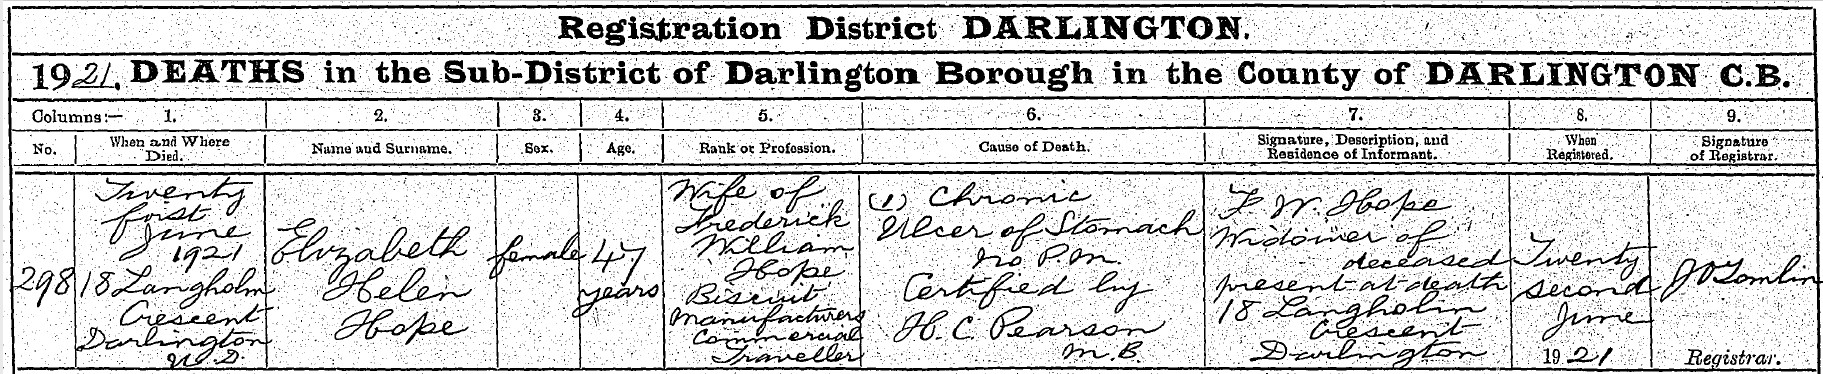 Registration District DARLINGTON.
1921. DEATHS in the Sub-District of Darlington Borough in the County of DARLINGTON C.B.
Columns:— 1. 2. 3. 4. 5. 6. 7. 8. 9.
No. When and Where Died. Name and Surname. Sex. Age. Rank or Profession. Cause of Death. Signature, Description, and Residence of Informant. When Registered. Signature of Registrar.
298
Twenty
first
June
1921
18 Langholm
Crescent
Darlington
U.D.
Elizabeth
Helen
Hope
female
47
years
Wife of
Frederick
William
Hope
Biscuit
Manufacturers
Commercial
Traveller
(1) Chronic
Ulcer of Stomach
No P.M.
Certified by
H. C. Pearson
M.B.
F W. Hope
Widower of
deceased
present at death
18 Langholm
Crescent
Darlington
Twenty
second
June
1921
J O Tomlin
Registrar.